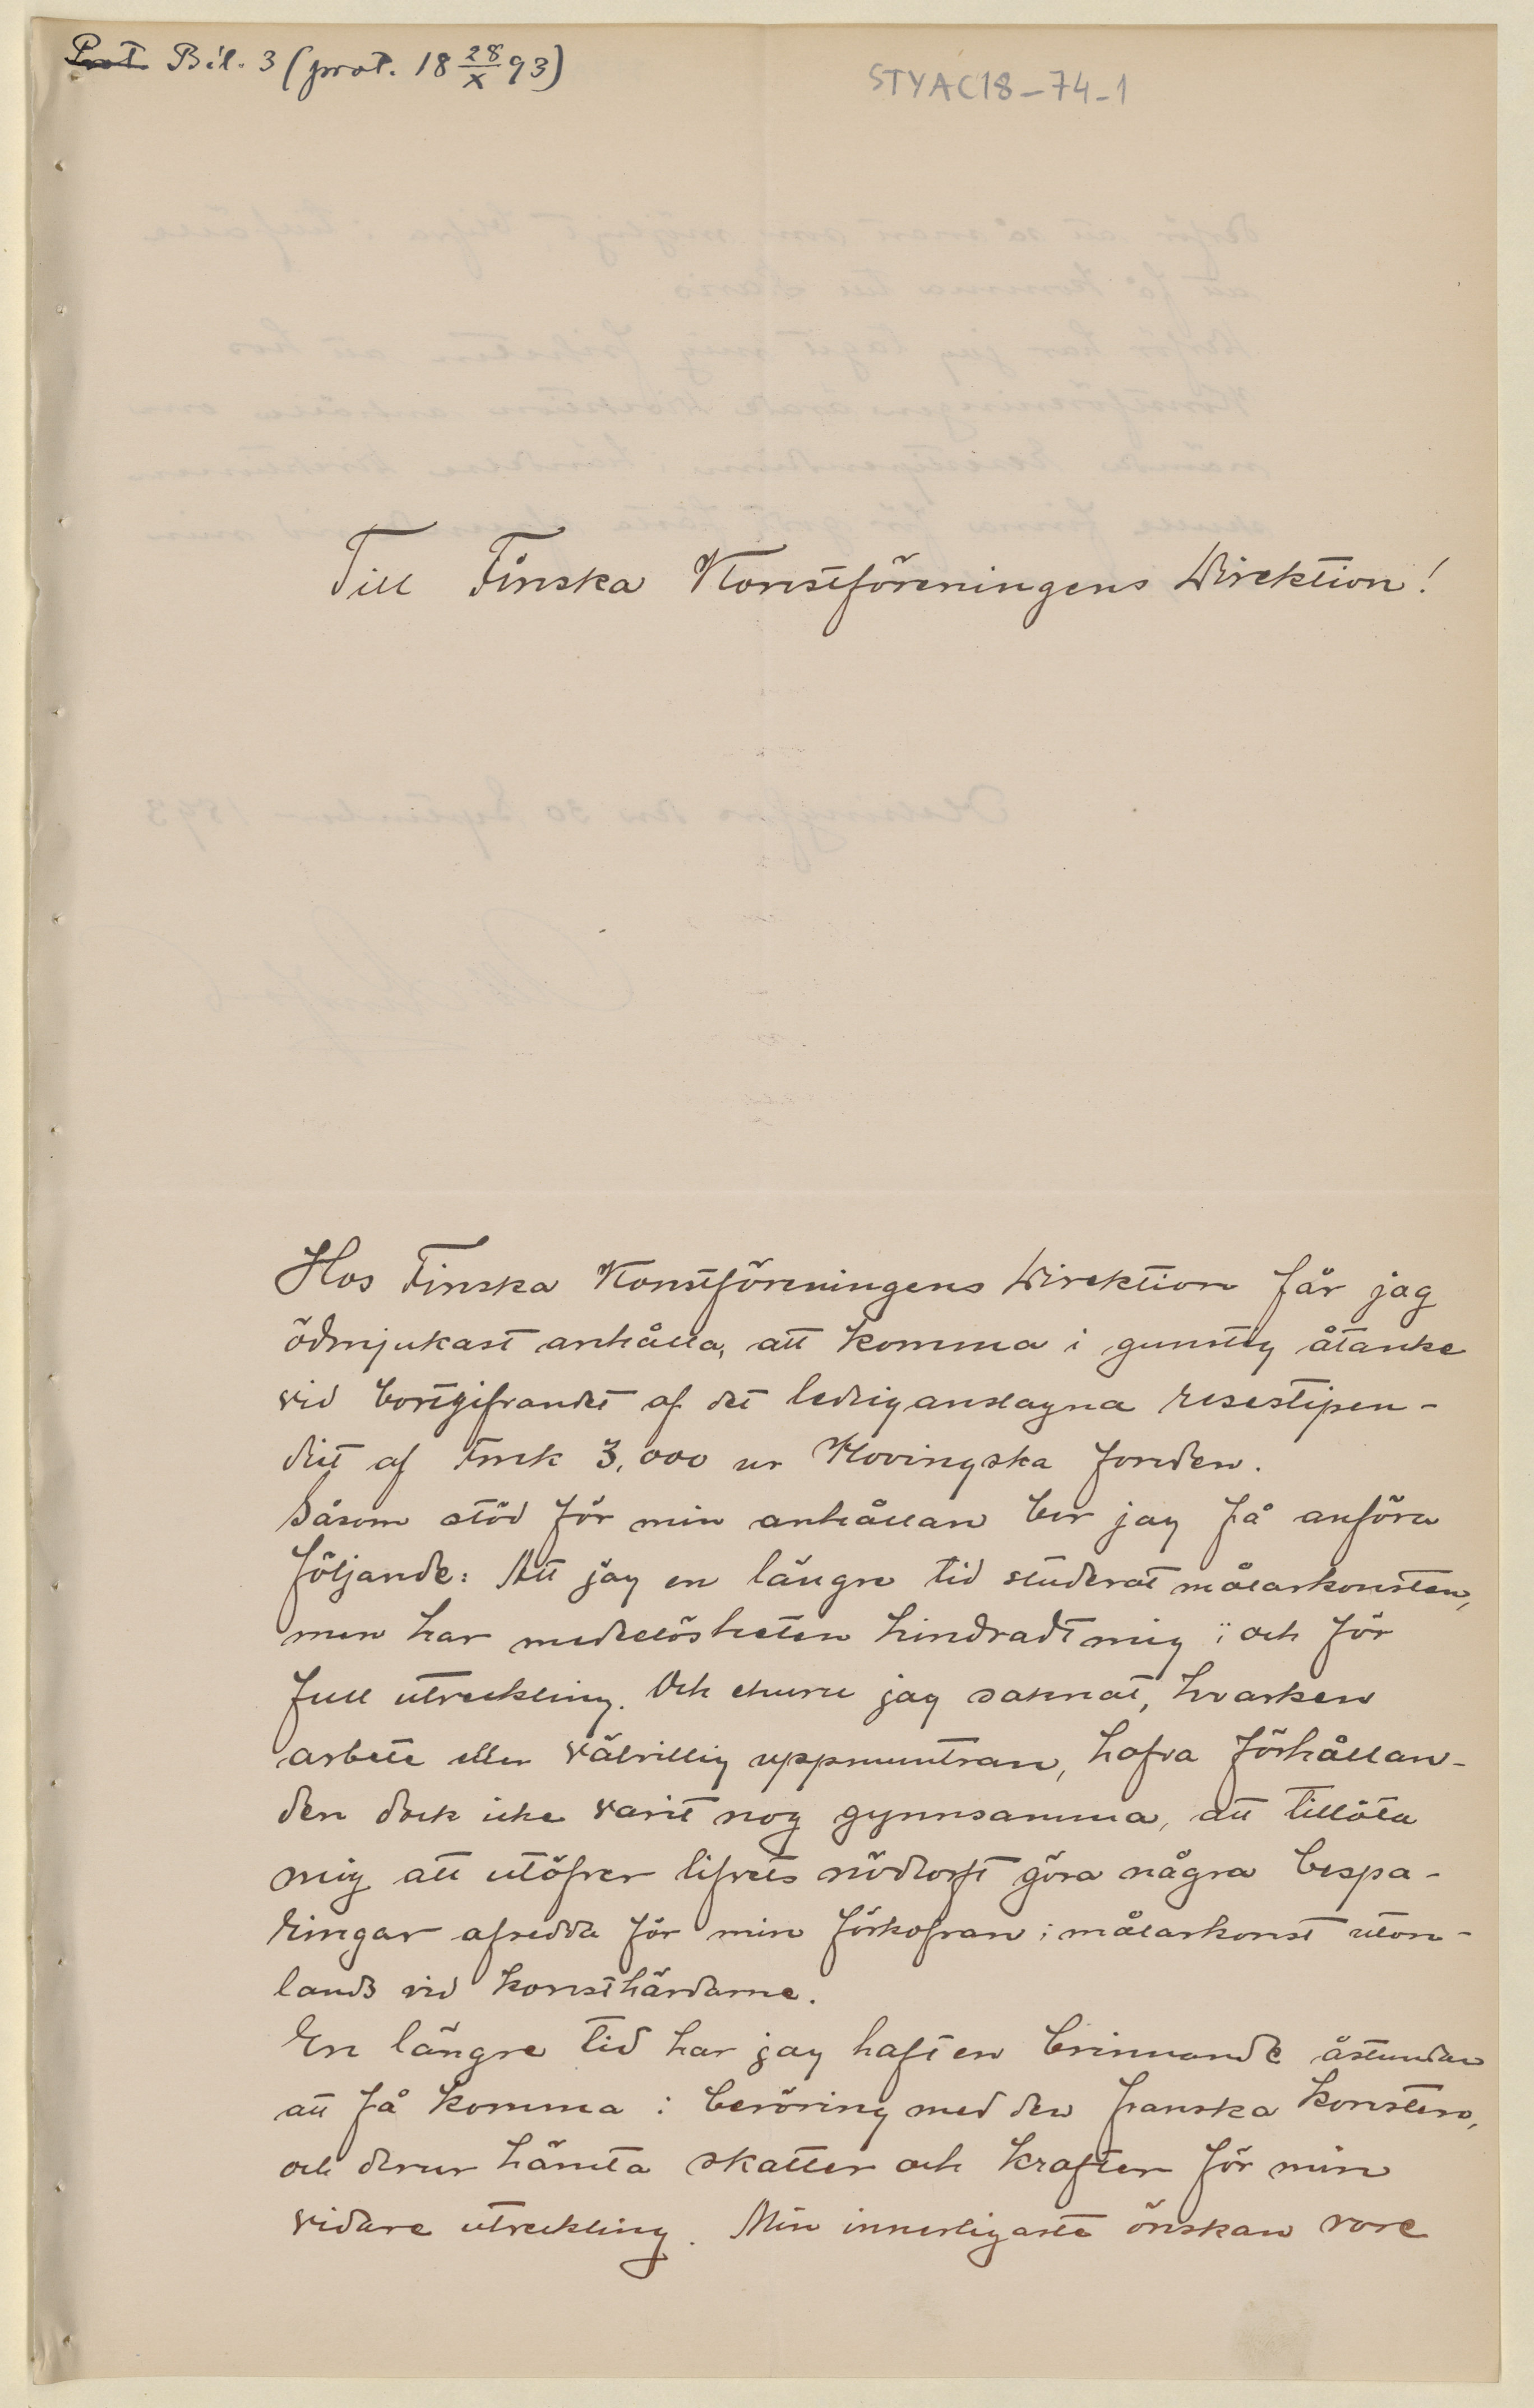 Prot. Bil. 3 (prot. 18 28/X 93)
STYAC18-74-1
Till Finska Konstföreningens Direktion!
Hos Finska Konstföreningens Direktion får jag
ödmjukast anhålla, att komma i gunstig åtanke
vid bortgifvandet af det lediganslagna resestipen-
diet af Fmk 3,000 ur Hovingska fonden.
Såsom stöd för min anhållan ber jag få anföra
följande: Att jag en längre tid studerat målarkonsten,
men har medellösheten hindradt mig i och för
full utveckling. Och ehuru jag saknat, hvarken
arbete eller välvillig uppmuntran, hafva förhållan-
den dock icke varit nog gynnsamma, att tillåta
mig att utöfver lifvets nödtorft göra några bespa-
ringar afsedda för min förkofran i målarkonst utom-
lands vid konsthärdarne.
En längre tid har jag haft en brinnande åstundan
att få komma i beröring med den franska konsten,
och derur hämta skatter och krafter för min
vidare utveckling. Min innerligaste önskan vore